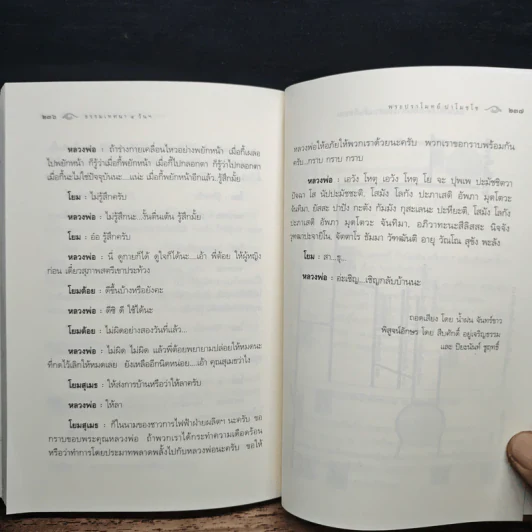 ๒๓๖ ธรรมเทศนา ๒ ธันวา
หลวงพ่อ : ถ้าร่างกายเคลื่อนไหวอย่างพยักหน้า เมื่อกี้เผลอ
ไปพยักหน้า ก็รู้ว่าเมื่อกี้พยักหน้า เมื่อกี้ไปกลอกตา ก็รู้ว่าไปกลอกตา
เมื่อกี้นะไม่ใช่ปัจจุบันนะ...แน่ะ เมื่อกี้พยักหน้าอีกแล้ว รู้สึกมั้ย
โยม : ไม่รู้สึกครับ
หลวงพ่อ : ไม่รู้สึกนะ...งั้นตื่นเต้น รู้สึกมั้ย
โยม : อ๋อ รู้สึกครับ
หลวงพ่อ : นี่ ดูกายก็ได้ ดูใจก็ได้นะ...เอ้า พี่ต้อย ให้ผู้หญิง
ก่อน เดี๋ยวสุภาพสตรีเขาประท้วง
โยมต้อย : ดีขึ้นบ้างหรือยังคะ
หลวงพ่อ : ดีซิ ดี ใช้ได้นะ
โยมต้อย : ไม่ผิดอย่างสองวันที่แล้ว...
หลวงพ่อ : ไม่ผิด ไม่ผิด แล้วพี่ต้อยพยายามปล่อยให้หมดนะ
ที่กดไว้เลิกให้หมดเลย ยังเหลืออีกนิดหน่อย...เอ้า คุณสุเมธว่าไง
โยมสุเมธ : ให้ส่งการบ้านหรือว่าให้ลาครับ
หลวงพ่อ : ให้ลา
โยมสุเมธ : ก็ในนามของชาวการไฟฟ้าฝ่ายผลิตฯ นะครับ ขอ
กราบขอบพระคุณหลวงพ่อ ถ้าพวกเราได้กระทำความเดือดร้อน
หรือว่าทำการโดยประมาทพลาดพลั้งไปกับหลวงพ่อนะครับ ขอให้
พระปราโมทย์ ปาโมชฺโช ๒๓๗
หลวงพ่อให้อภัยให้พวกเราด้วยนะครับ พวกเราขอกราบพร้อมกัน
ครับ...กราบ กราบ กราบ
หลวงพ่อ : เอวัง โหตุ เอวัง โหตุ โย จะ ปุพเพ ปะมัชชิตวา
ปัจฉา โส นัปปะมัชชะติ, โสมัง โลกัง ปะภาเสติ อัพภา มุตโตวะ
จันทิมา, ยัสสะ ปาปัง กะตัง กัมมัง กุสะเลนะ ปะหิยะติ, โสมัง โลกัง
ปะภาเสติ อัพภา มุตโตวะ จันทิมา, อภิวาทะนะสีลิสสะ นิจจัง
วุฑฒาปะจายิโน, จัตตาโร ธัมมา วัฑฒันติ อายุ วัณโณ สุขัง พะลัง
โยม : สา...ธุ..
หลวงพ่อ : อ่ะเชิญ...เชิญกลับบ้านนะ
ถอดเสียง โดย น้ำฝน จันทร์ขาว
พิสูจน์อักษร โดย สืบศักดิ์ อยู่เจริญธรรม
และ ปิยะนันท์ ชูฤทธิ์